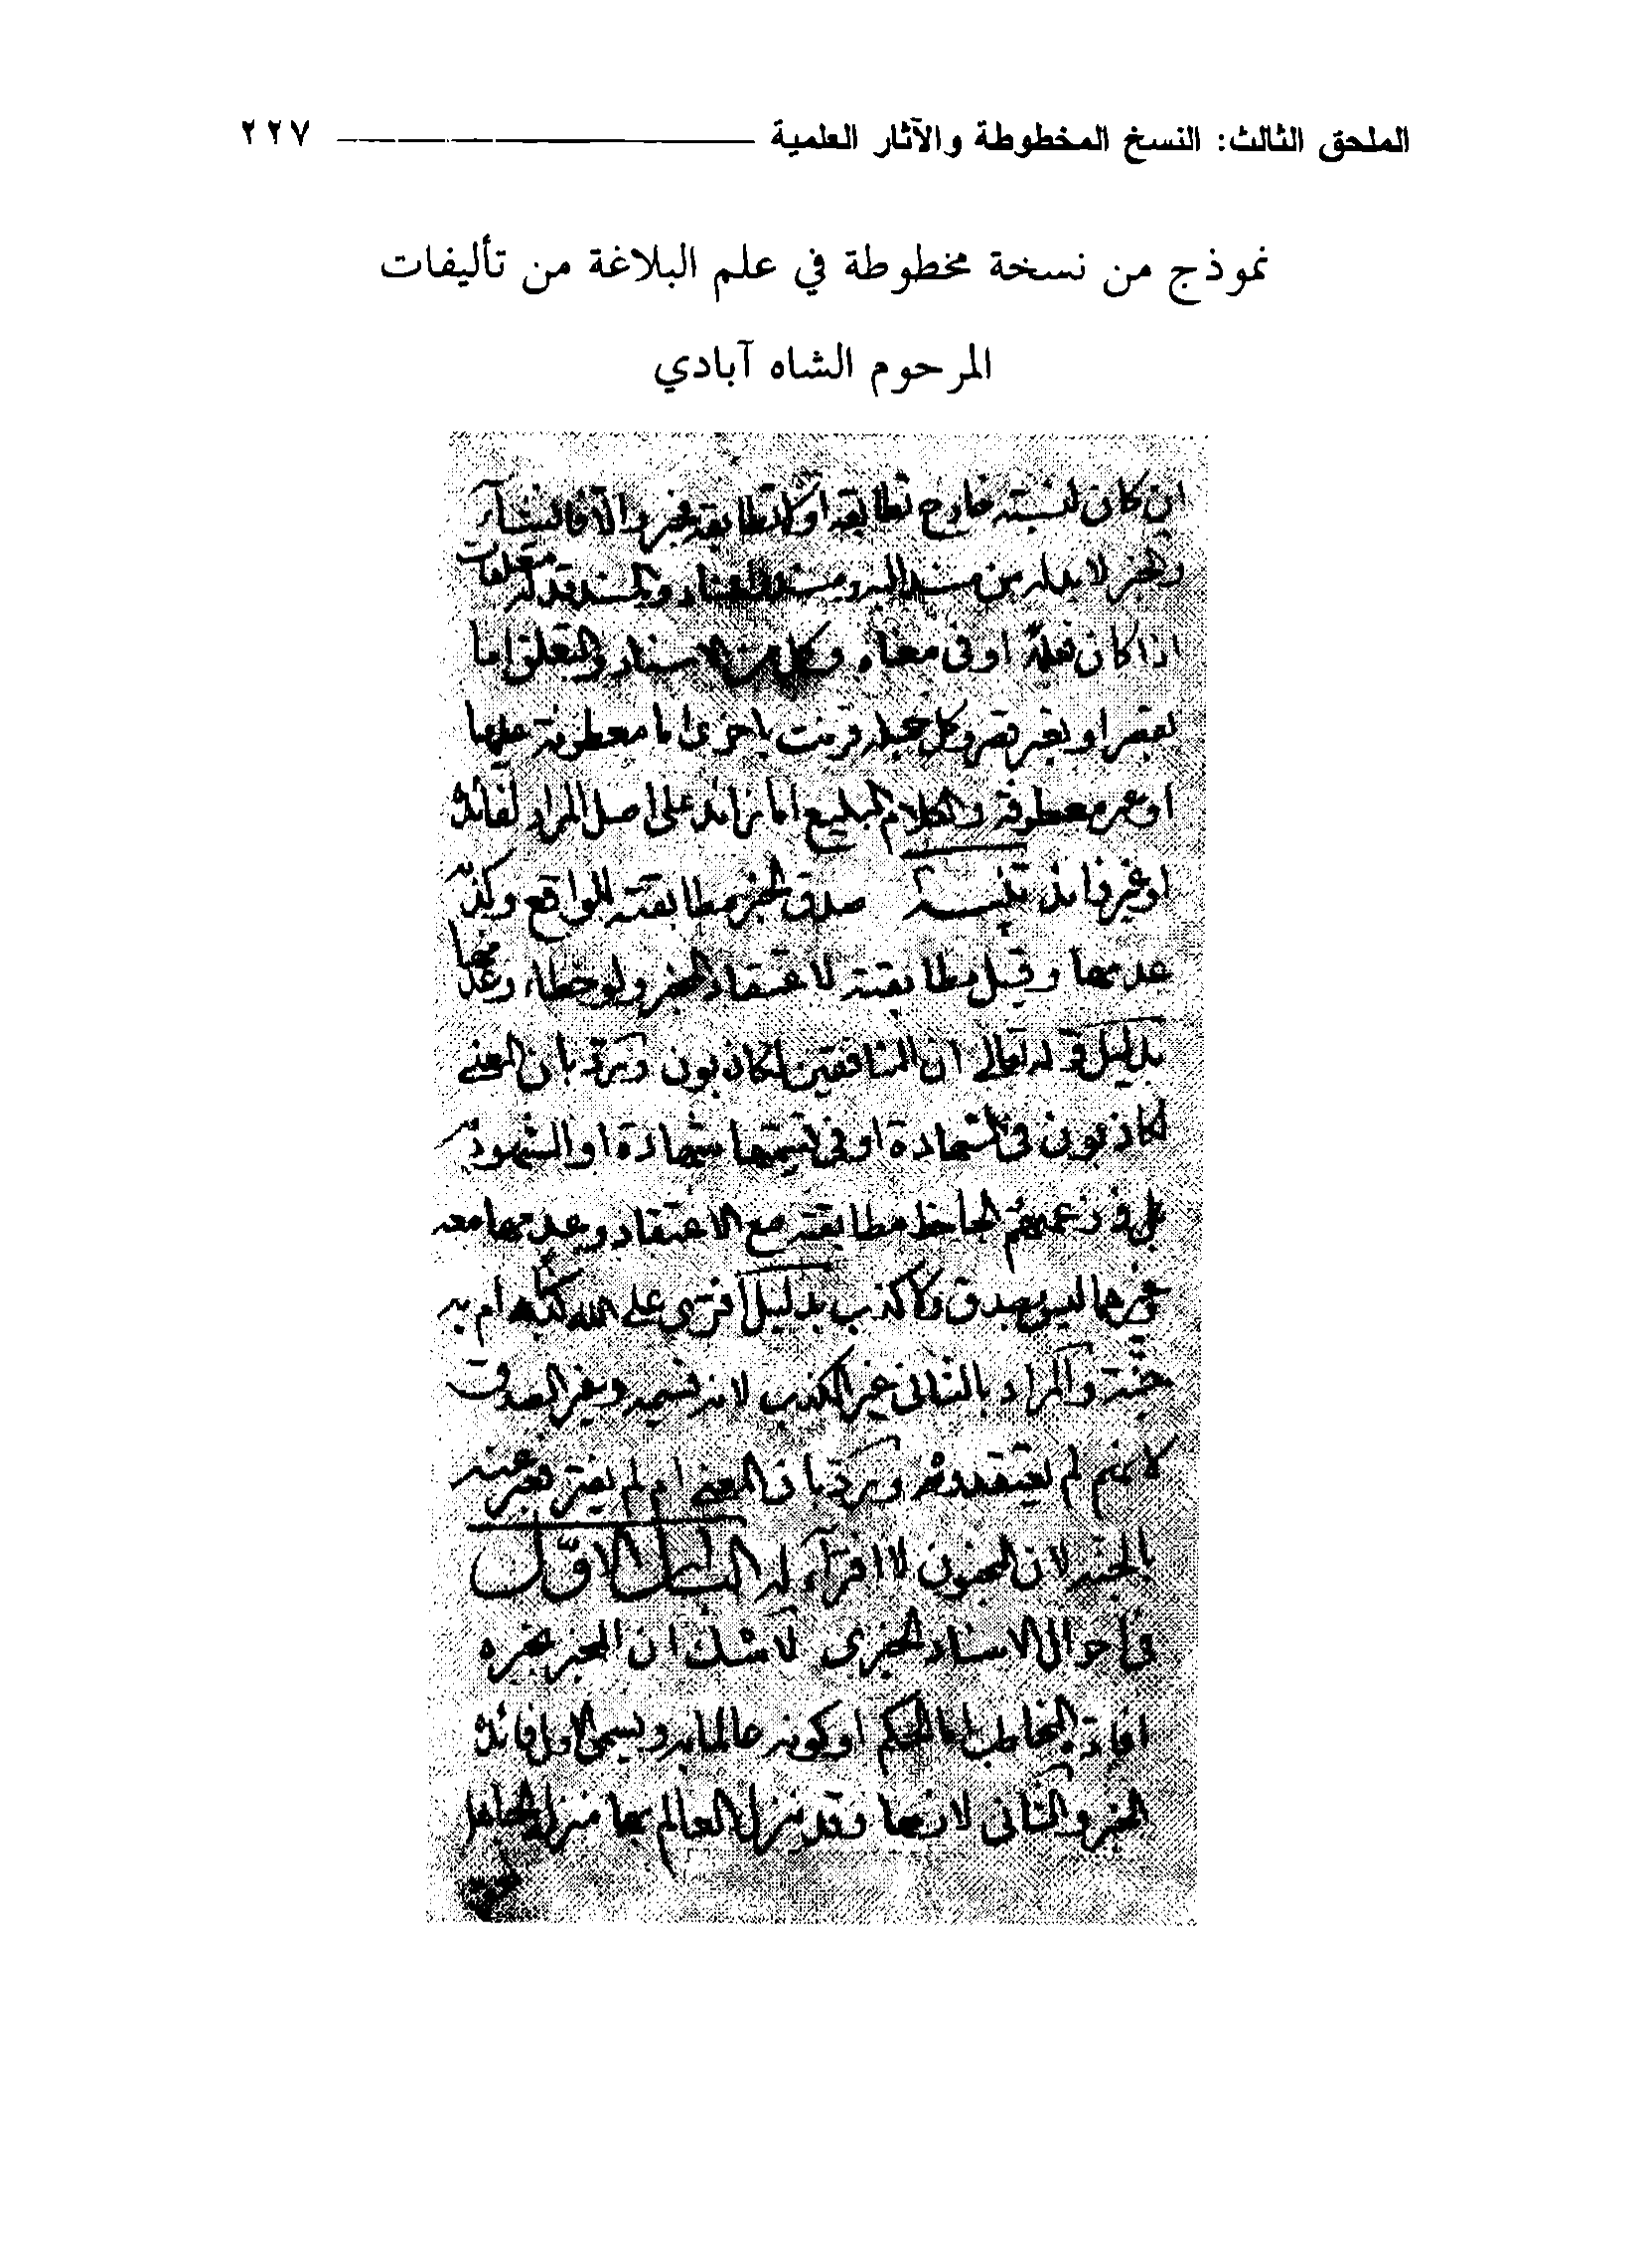 الملحق الثالث: النسخ المخطوطة والآثار العلمية ٢٢٧
نموذج من نسخة مخطوطة في علم البلاغة من تأليفات
المرحوم الشاه آبادي
ان كان لنسبته خارج تطابقه او لا تطابقه فخبر والا فانشاء
والخبر لا بد له من مسند اليه ومسند واسناد والمسند قد له متعلقات
اذا كان فعلا او فى معناه وكل من الاسناد والتعلق اما
بقصر او بغير قصر وكل جملة قرنت باخرى اما معطوفة عليها
او غير معطوفة والكلام البليغ اما زائد على اصل المراد لفائدة
او غير زائد تنبيه صدق الخبر مطابقته للواقع وكذبه
عدمها وقيل مطابقته لاعتقاد المخبر ولو خطاء وعدمها
بدليل قوله تعالى ان المنافقين لكاذبون ورد بان المعنى
لكاذبون فى الشهادة او فى تسميتها شهادة او المشهود به
فى زعمهم الجاحظ مطابقته مع الاعتقاد وعدمها معه
غيرهما ليس بصدق ولا كذب بدليل افترى على الله كذبا ام به
جنة والمراد بالثانى غير الكذب لانه قسيمه وغير الصدق
لانهم لم يعتقدوه ورد بان المعنى ام لم يفتر فعبر عنه
بالجنة لان المجنون لا افتراء له الباب الاول
فى احوال الاسناد الخبرى لا شك ان المخبر بخبره
افادة المخاطب اما الحكم او كونه عالما به ويسمى الاول فائدة
الخبر والثانى لازمها وقد ينزل العالم بهما منزلة الجاهل